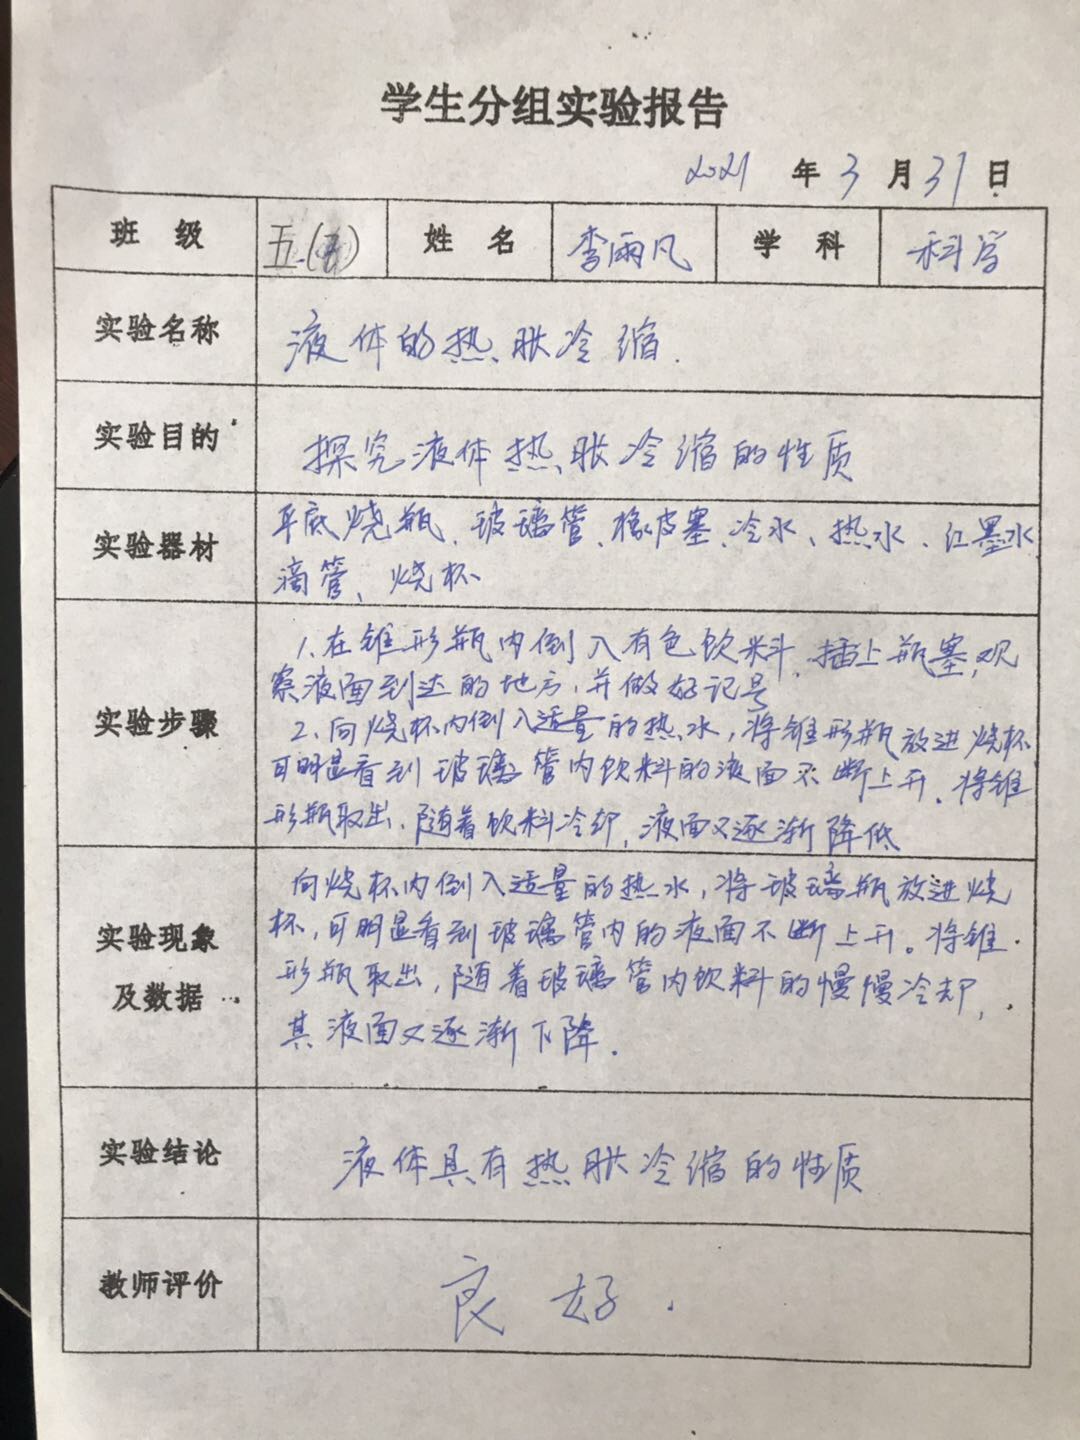 学生分组实验报告
2021 年 3 月 31 日
班 级 五.( ) 姓 名 李雨凡 学 科 科学
实验名称 液体的热胀冷缩.
实验目的 探究液体热胀冷缩的性质
实验器材
平底烧瓶、玻璃管、橡皮塞、冷水、热水、红墨水
滴管、烧杯
实验步骤
1.在锥形瓶内倒入有色饮料,插上瓶塞,观
察液面到达的地方,并做好记号
2、向烧杯内倒入适量的热水,将锥形瓶放进烧杯
可明显看到玻璃管内饮料的液面不断上升。将锥
形瓶取出、随着饮料冷却,液面又逐渐降低
实验现象
及数据
向烧杯内倒入适量的热水,将玻璃瓶放进烧
杯,可明显看到玻璃管内的液面不断上升。将锥
形瓶取出,随着玻璃管内饮料的慢慢冷却,
其液面又逐渐下降.
实验结论 液体具有热胀冷缩的性质
教师评价 良好.